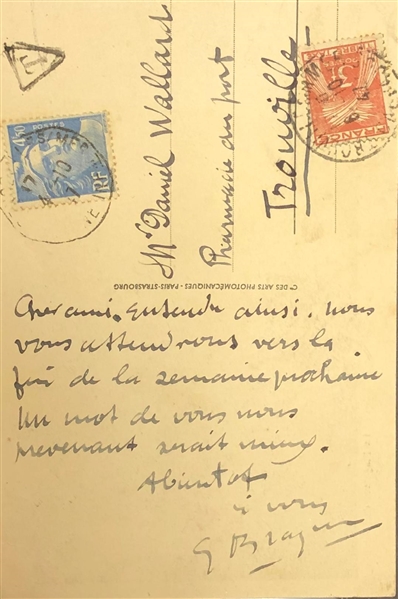 T
POSTES
4F50
RF
Mr Daniel Wallart
Pharmacie du port
Trouville
3F
FRANCE
Cie DES ARTS PHOTOMÉCANIQUES - PARIS-STRASBOURG
Cher ami. Entendu ainsi. nous
vous attendrons vers la
fin de la semaine prochaine
Un mot de vous nous
prevenant serait mieux.
A bientot
à vous
G Braque